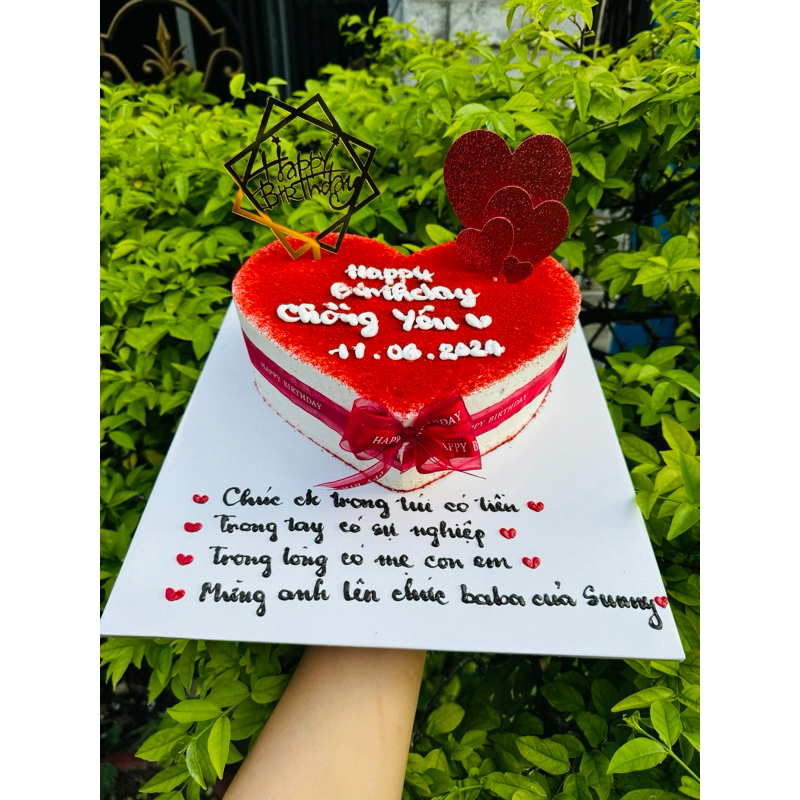 Happy
Birthday
Happy
Birthday
Chồng Yêu
11.06.2024
HAPPY BIRTHDAY
HAPPY BIRTHDAY
Chúc ck trong túi có tiền
Trong tay có sự nghiệp
Trong lòng có mẹ con em
Mừng anh lên chức baba của Sunny